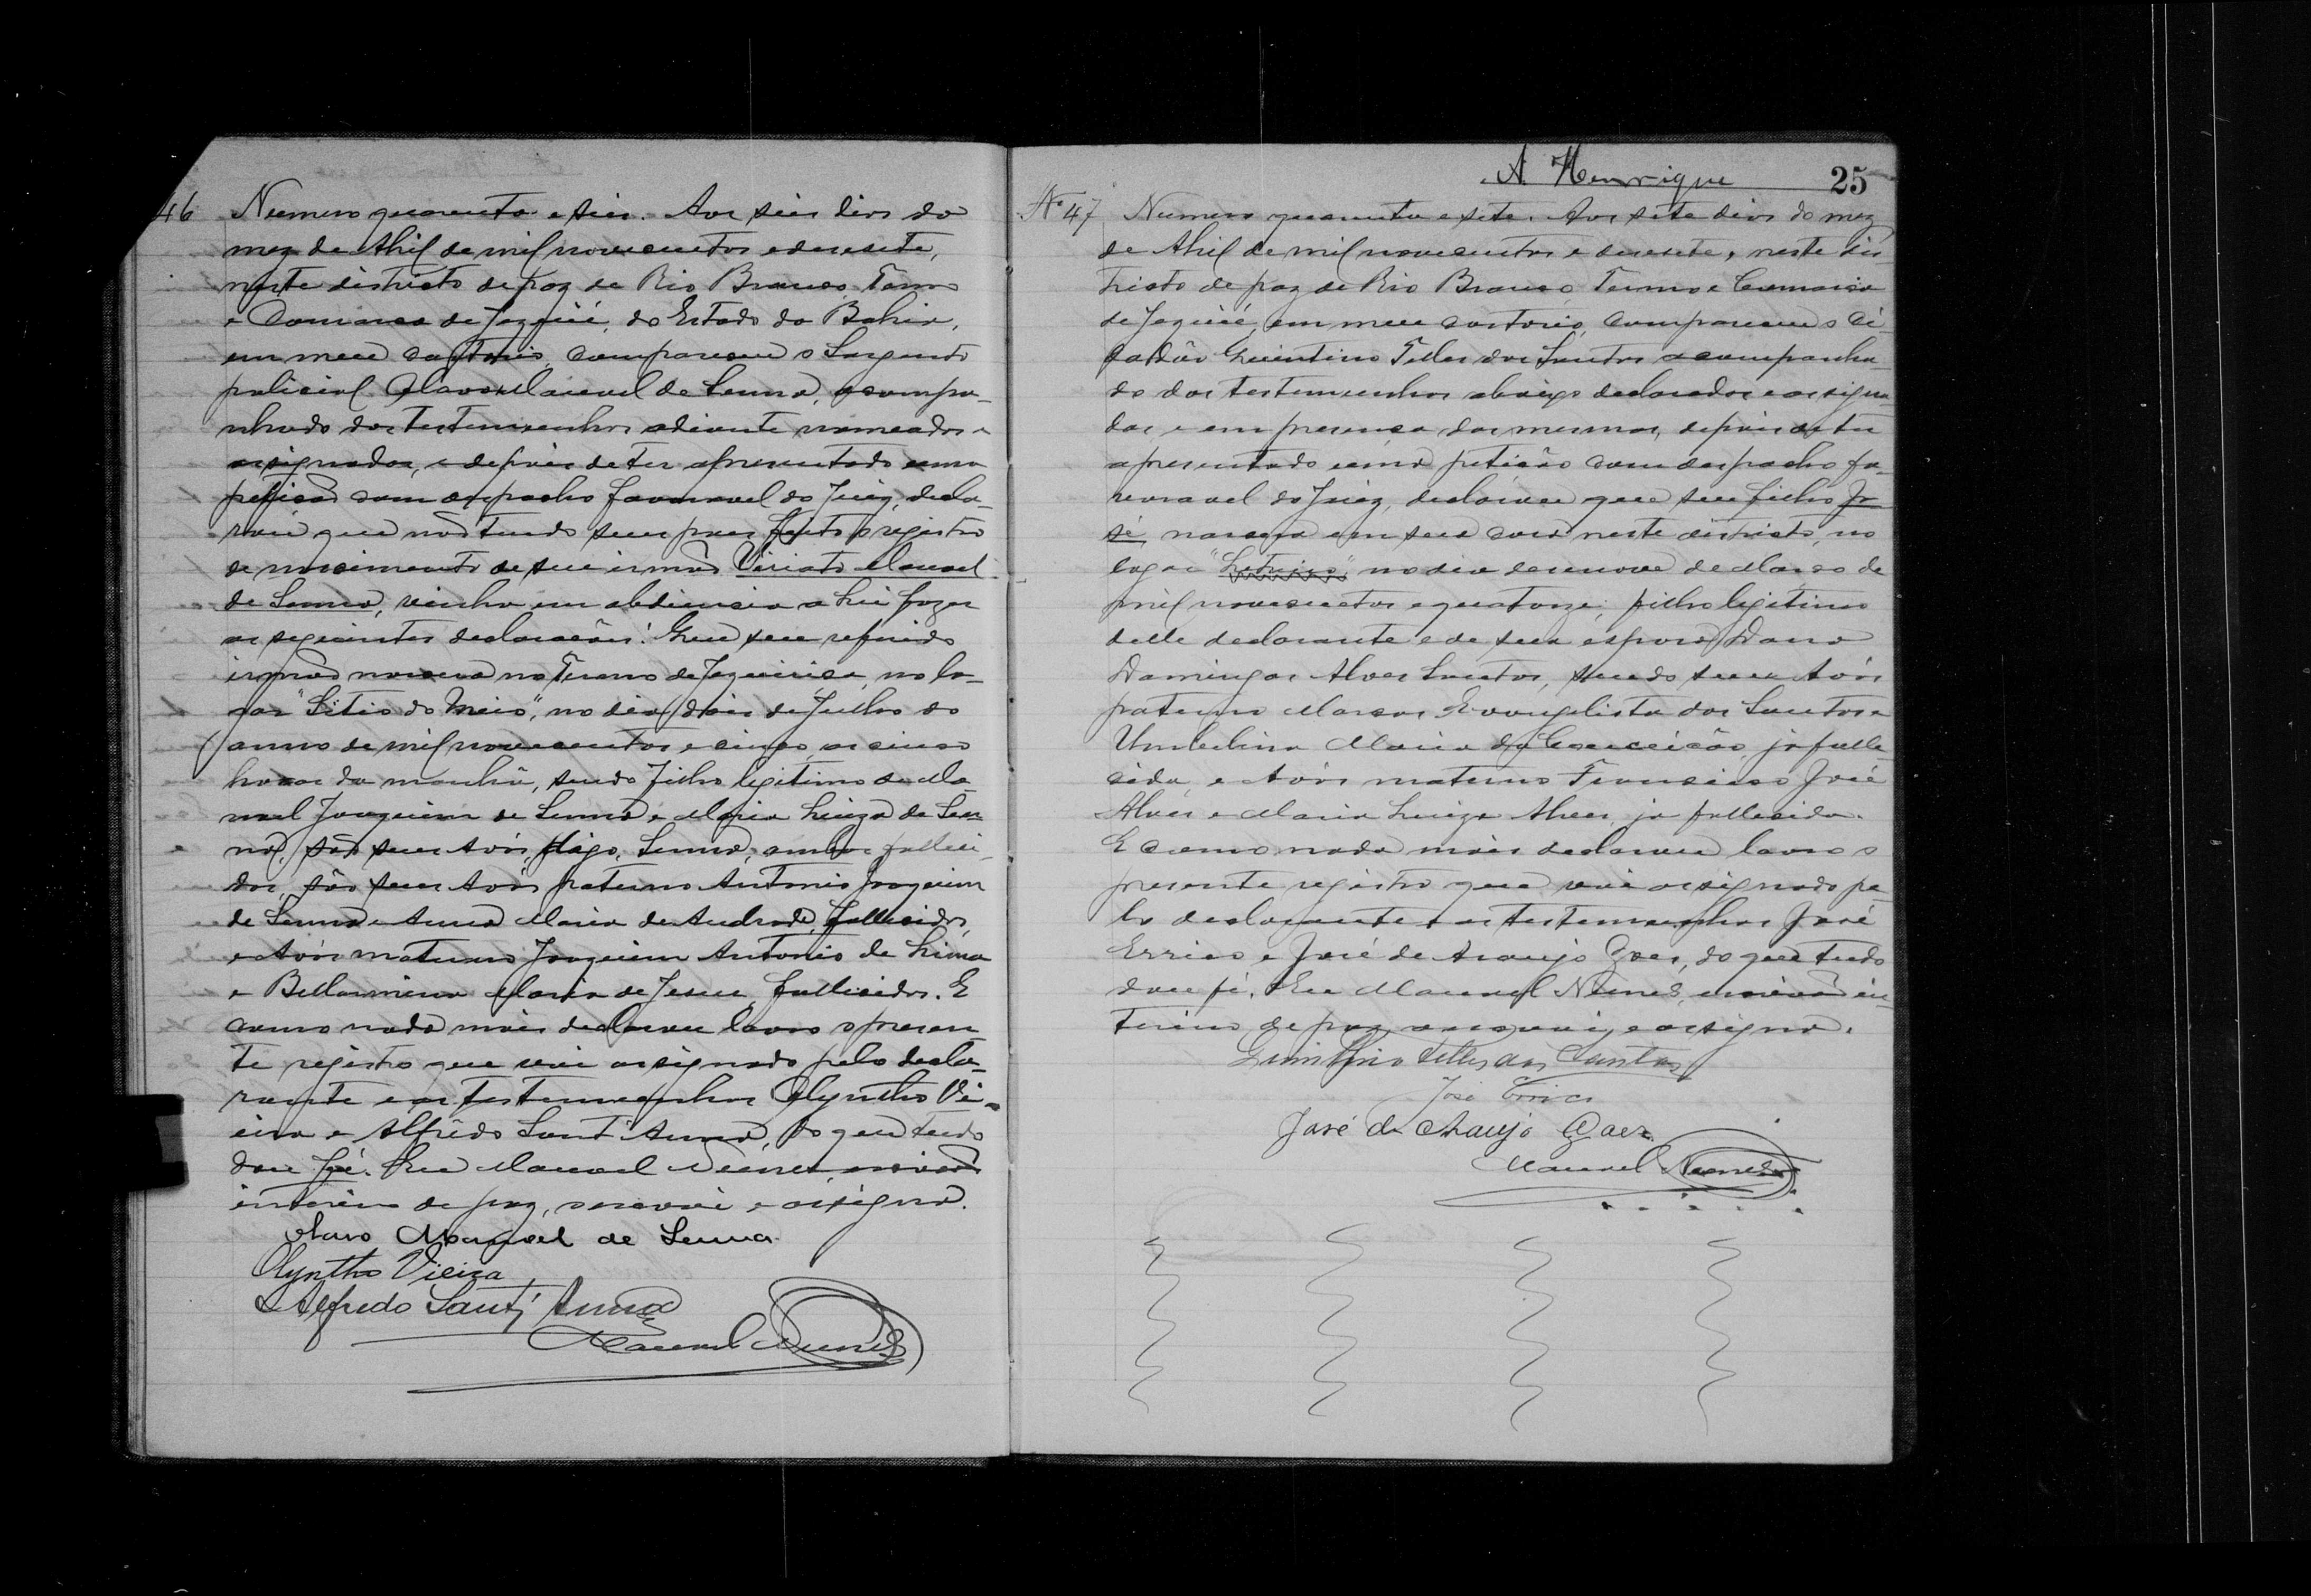 46 Numero quarenta e seis. Aos seis dias do
mez de Abril de mil novecentos e desesete,
neste districto de paz de Rio Branco, Termo
e Comarca de Jequié, do Estado da Bahia,
em meu cartorio, compareceu o Sargento
policial Olavo Manoel de Senna, acompa-
nhado das testemunhas adiante nomeadas e
assignadas, e depois de ter apresentado uma
petição com despacho favoravel do Juiz, decla-
rou que não tendo seus paes feito o registro
de nascimento de seu irmão Viriato Manoel
de Senna, vinha em obdiencia a Lei fazer
as seguintes declarações: Que seu referido
irmão nascera no Termo de Jequiriça, no lo-
gar "Sitio do Meio", no dia dois de Julho do
anno de mil novecentos e cinco, as cinco
horas da manhã, sendo filho legitimo de Ma-
noel Joaquim de Senna e Maria Luiza de Sen
na, são seus Avós, digo, Senna, ambos falleci-
dos, são seus Avós paterno Antonio Joaquim
de Senna e Anna Maria de Andrade, fallecidos,
e Avós maternos Joaquim Antonio de Lima
e Bellarmina Maria de Jesus, fallecidos. E
como nada mais declarou lavro o presen
te registro que vai assignado pelo decla-
rante e as testemunhas Olyntho Vi-
eira e Alfredo Sant'Anna, do que tudo
dou fé. Eu Manoel Nunes, escrivão
interino de paz, o escrevi e assigno.
Olavo Manoel de Senna
Olyntho Vieira
Alfredo Sant'Anna
Manoel Nunes
A. Henrique 25
Nº 47 Numero quarenta e sete. Aos sete dias do mez
de Abril de mil novecentos e desesete, neste dis
tricto de paz de Rio Branco, Termo e Comarca
de Jequié, em meu cartorio, compareceu o Ci-
dadão Quintino Telles dos Santos acompanha-
do das testemunhas abaixo declaradas e assigna-
das, e em presença das mesmas, depois de ter
apresentado uma petição com despacho fa-
voravel do Juiz, declarou que seu filho Jo
sé, nascera em sua casa neste districto, no
logar no dia desenove de Março de
mil novecentos e quatorze; filho legitimo
delle declarante e de sua esposa Dona
Domingas Alves Santos, sendo seus Avós
paterno Marcos Evangelista dos Santos e
Umbelina Maria da Conceição, já falle
cida, e Avós materno Francisco José
Alves e Maria Luiza Alves, já fallecida.
E como nada mais declarou lavro o
presente registro que vai assignado pe-
lo declarante e as testemunhas José
Errico e José de Araujo Goes, do que tudo
dou fé. Eu Manoel Nunes, escrivão in-
terino de paz, o escrevi, e assigno.
Quinthino Telles dos Santos
José Errico
José de Araujo Goes
Manoel Nunes